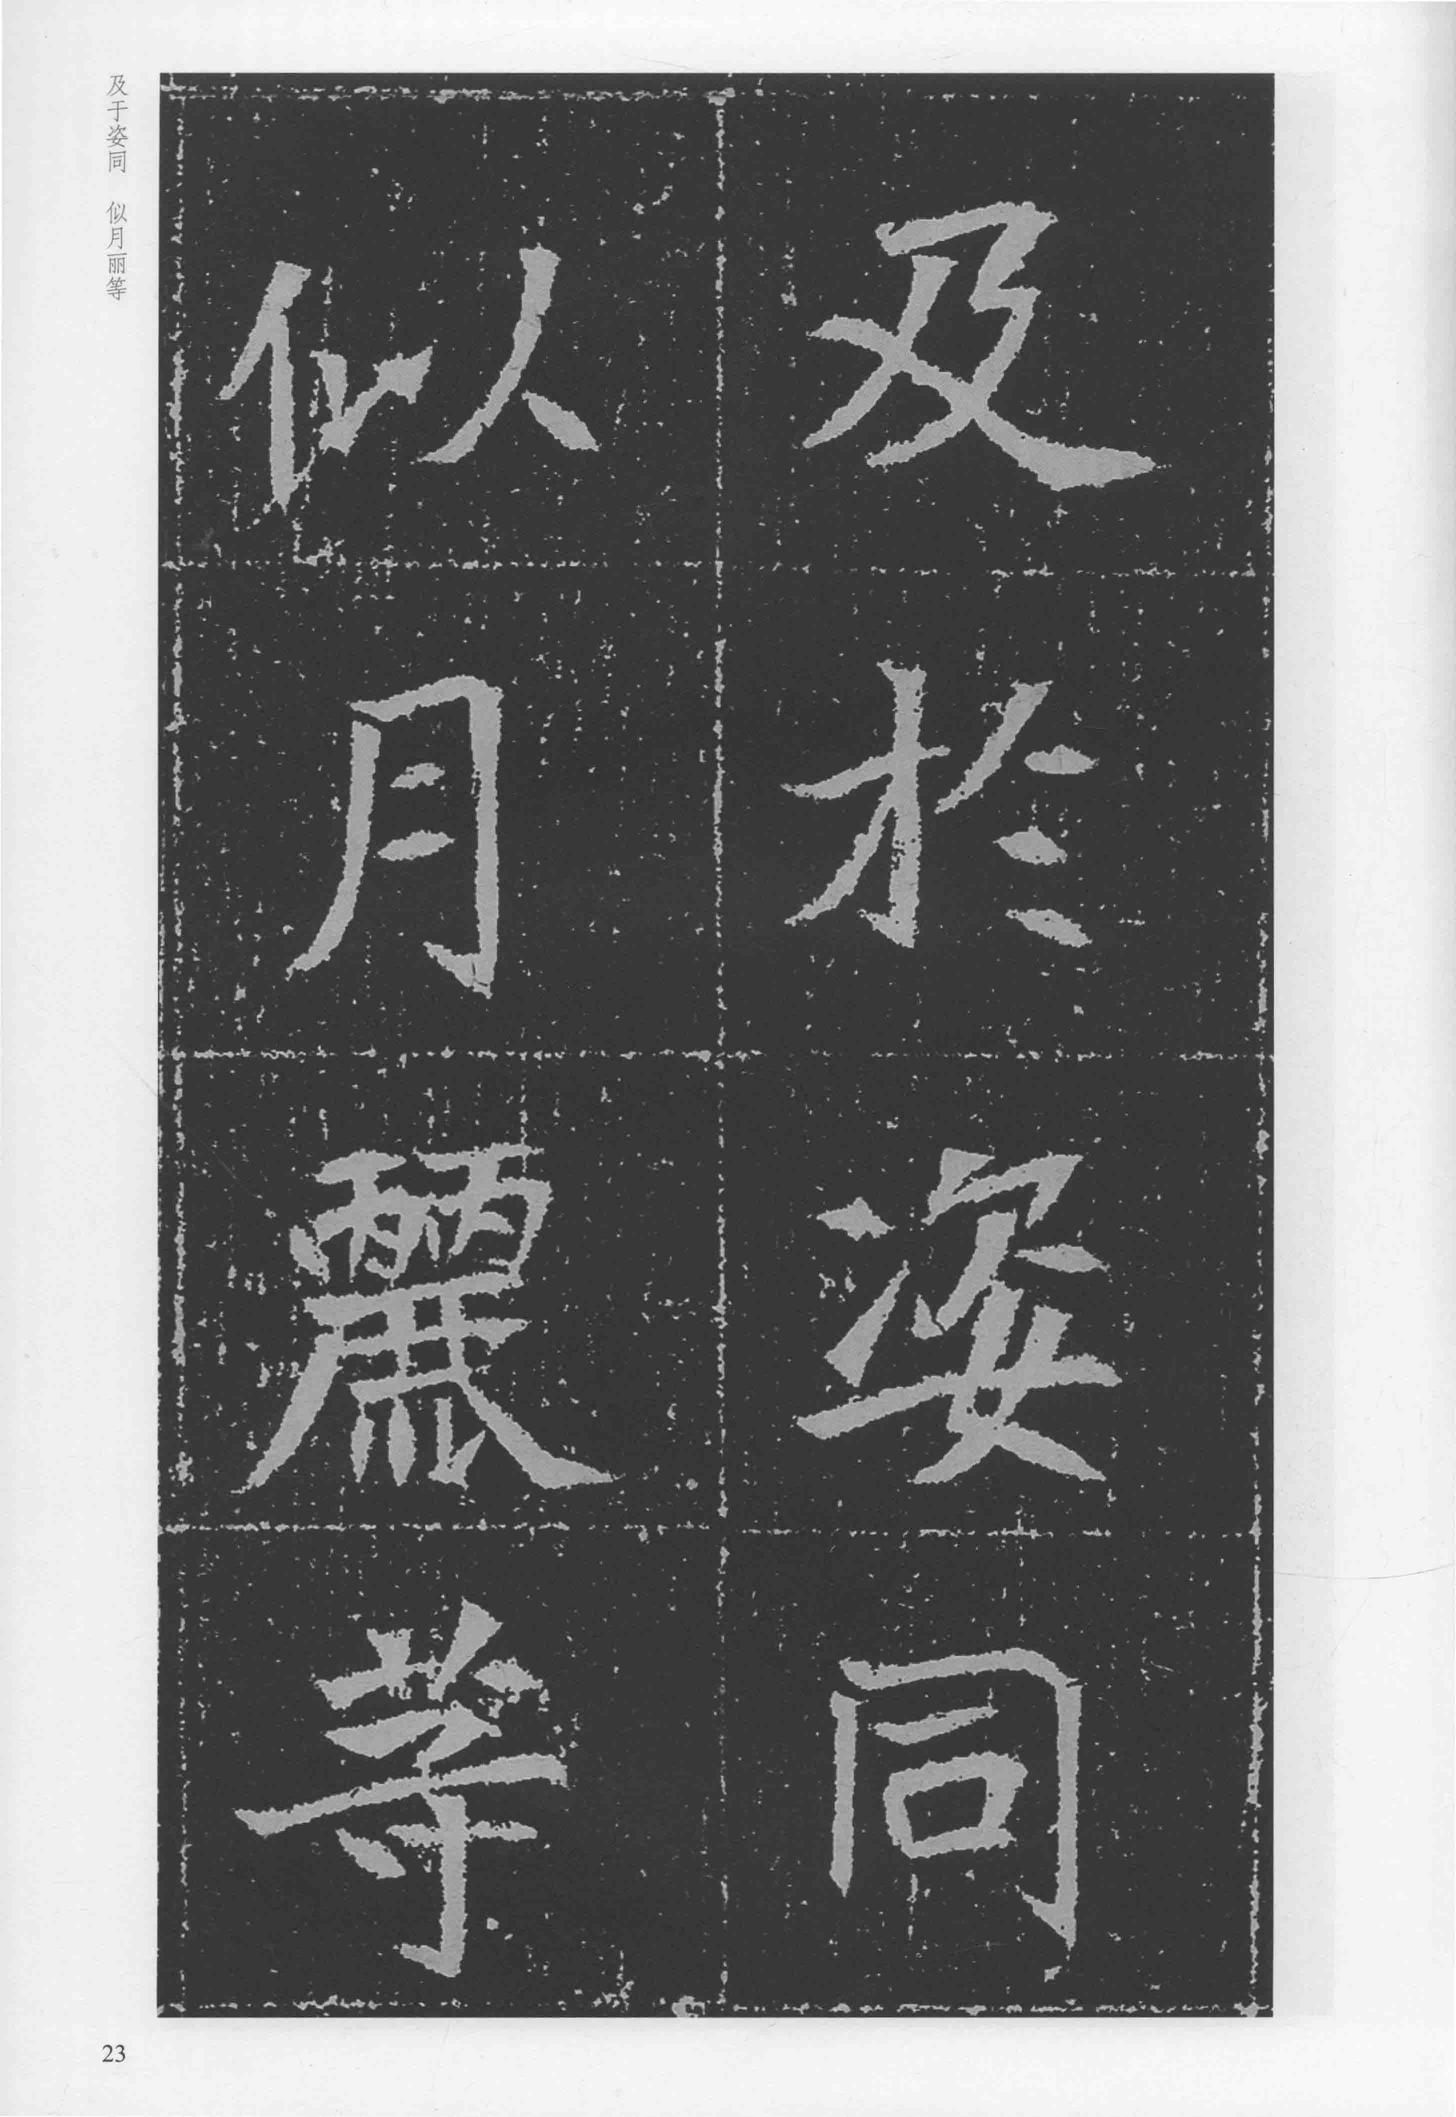 及於姿同
似月麗等
及于姿同　似月丽等
23